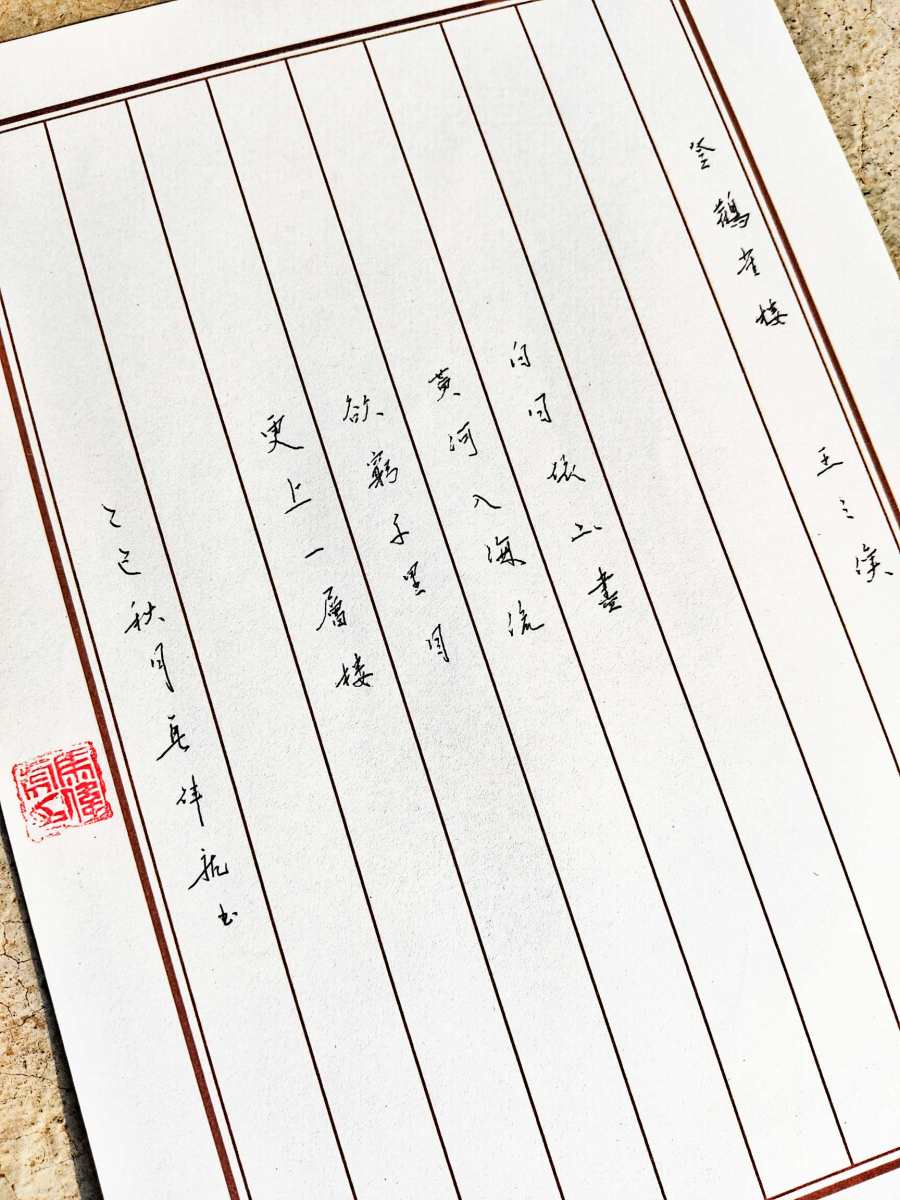 登鸛雀樓
王之渙
白日依山盡
黃河入海流
欲窮千里目
更上一層樓
乙巳秋月書